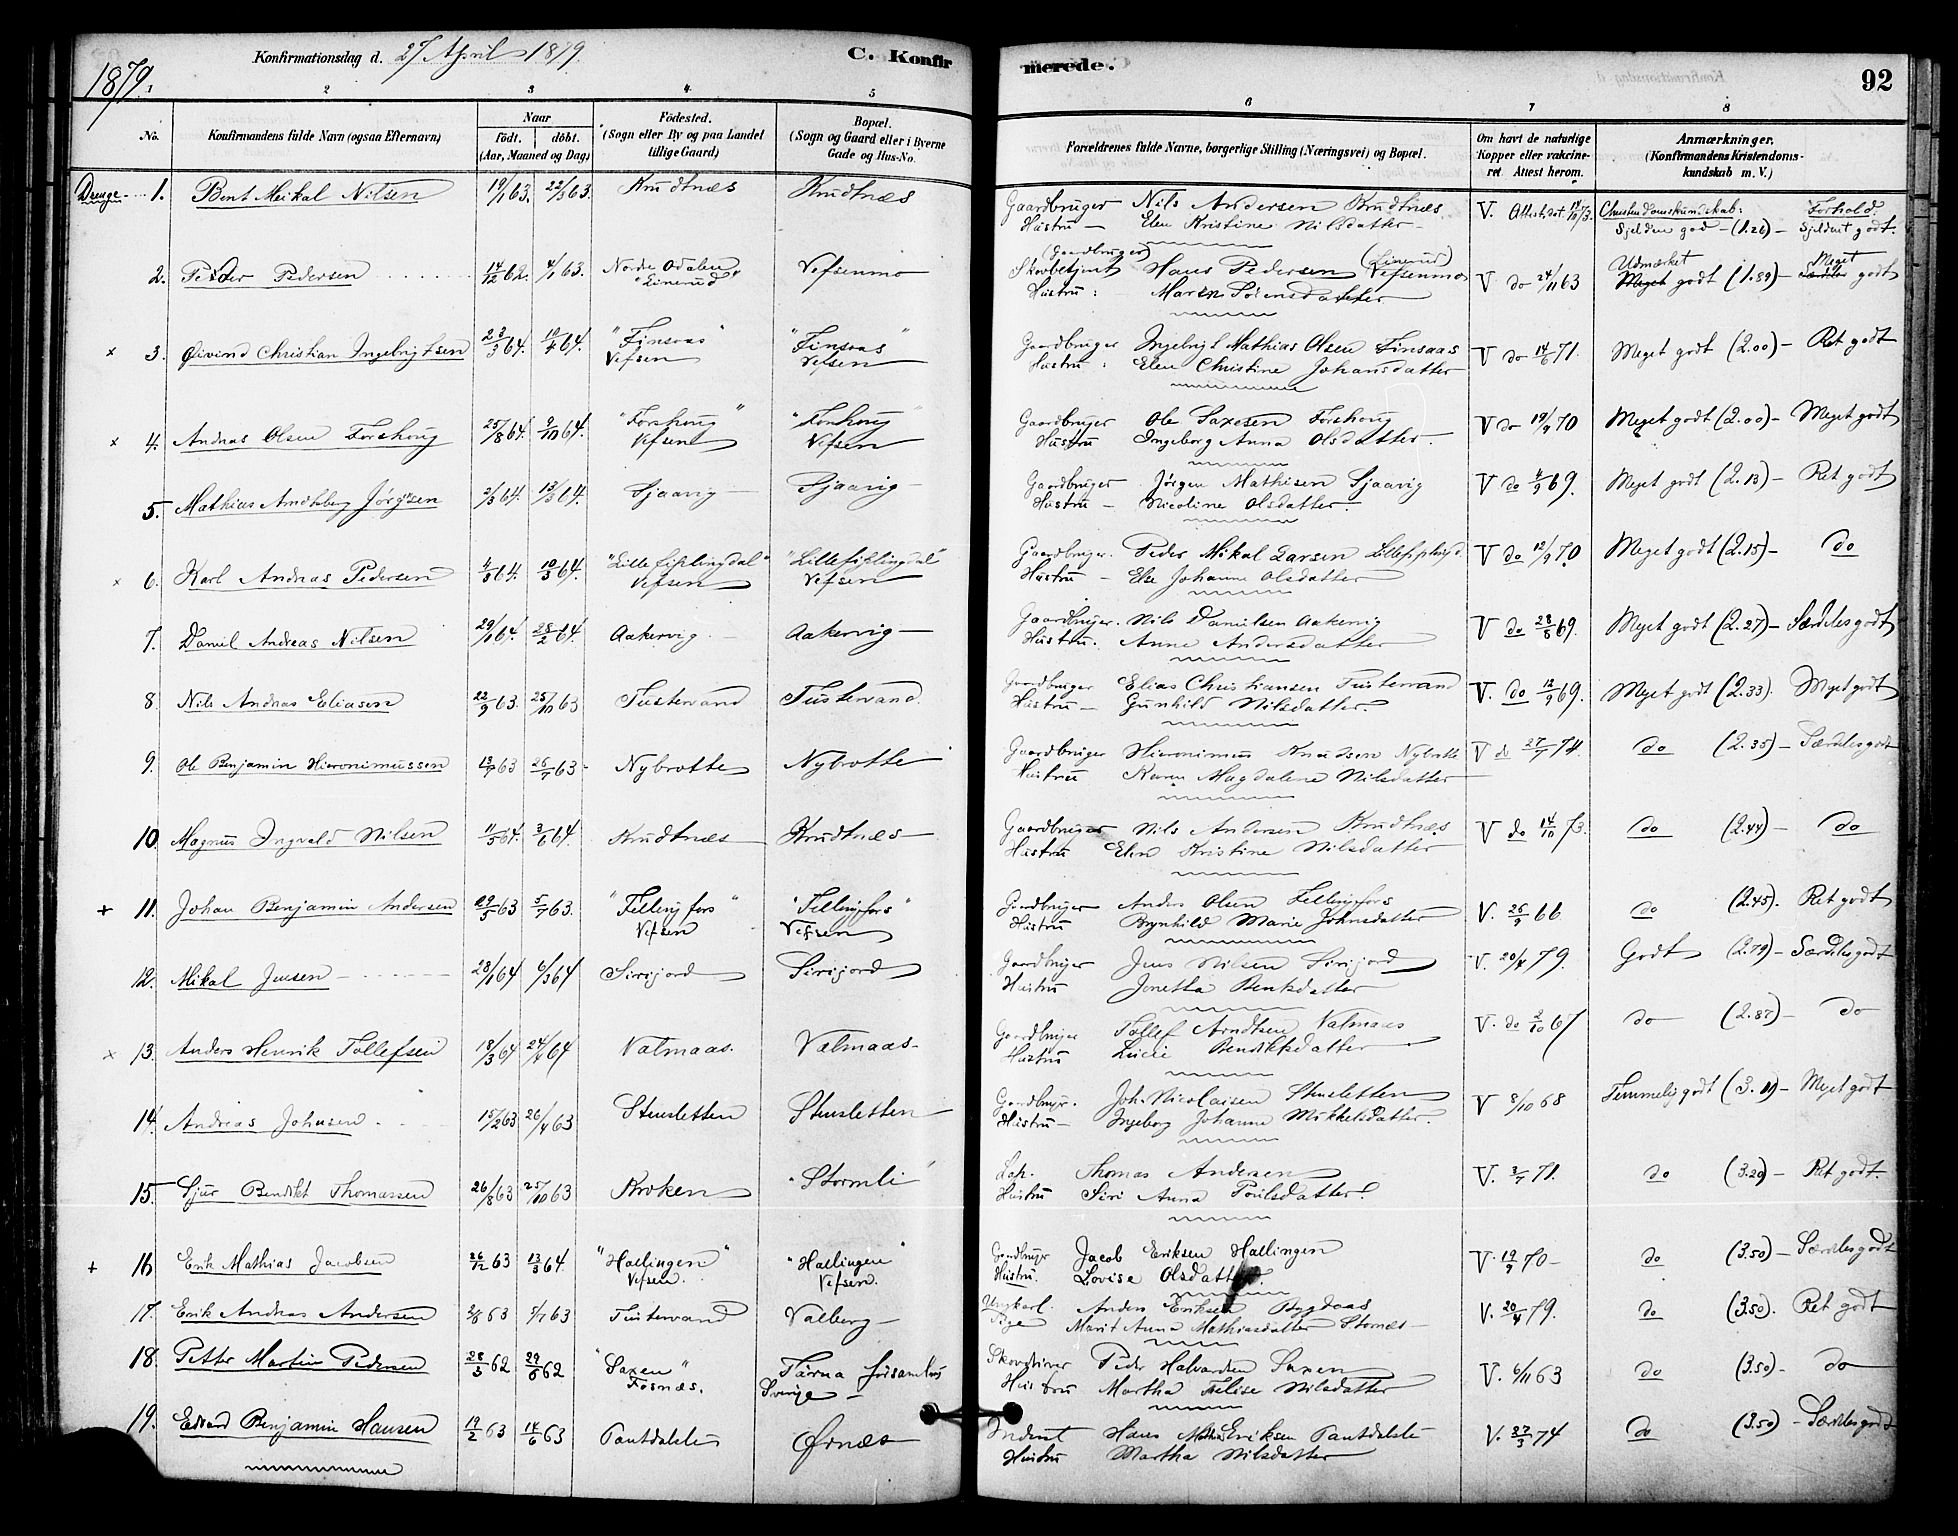 1879.
Konfirmationsdag d. 27 April 1879.
C. Konfirmerede.
92
1 2 3 4 5 6 7 8
No.
Konfirmandens fulde Navn (ogsaa Efternavn)
Naar
födt. döbt.
(Aar, Maaned og Dag)
Födested.
(Sogn eller By og paa Landet
tillige Gaard)
Bopæl.
(Sogn og Gaard eller i Byerne
Gade og Hus-No.
Forældrenes fulde Navne, borgerlige Stilling (Næringsvei) og Bopæl.
Om havt de naturlige
Kopper eller vakcine-
ret Attest herom.
Anmærkninger.
(Konfirmandens Kristendoms-
kundskab m. V.)
Drenge 1. Bent Mikal Nilsen 19/1 63. 22/3 63. Krudtnæs Krudtnæs Gaardbruger Nils Andersen Krudtnæs V. Attest. dat. 14/10 73. Christendomskundskab: Forhold.
Hustru Elen Kristine Nilsdatter Sjelden god (1.26) Sjeldent godt.
(Gaardbruger) (Linerud) Udmærket Meget
2. Peder Pedersen 14/12 62. 4/1 63. Nordre Odalen Vefsenmo Skovbetjent Hans Pedersen Vefsenmo V do 24/11 63 Meget godt (1.89) Særdeles godt
"Linerud" Hustru: Maren Sörensdatter
x 3. Øivind Christian Ingebrigtsen 23/3 64. 19/4 64. "Finsaas" "Finsaas" Gaardbruger Ingebrigt Mathias Olsen Finsaas V do 14/6 71. Meget godt (2.00) Ret godt
Vefsen Vefsen Hustru: Elen Christine Johansdatter
x 4. Andreas Olsen Forshoug 25/8 64. 9/10 64. "Forshoug" "Forshoug" Gaardbruger Ole Saxesen Forshoug V do 19/9 70 Meget godt (2.00) Meget godt
Vefsen Vefsen Hustru Ingeborg Anna Olsdatter.
5. Mathias Arndtsberg Jørgensen 2/3 64. 13/3 64. Sjaavig Sjaavig Gaardbruger Jørgen Mathisen Sjaavig V do 4/9 69. Meget godt (2.13) Ret godt
Hustru Nicoline Olsdatter.
x 6. Karl Andreas Pedersen 4/3 64. 10/3 64. "Lillefiplingdal" "Lillefiplingdal" Gaardbruger. Peder Mikal Larsen Lillefiplingd. V do 12/9 70 Meget godt (2.15) do
Vefsen Vefsen Hustru Else Johanne Olsdatter
7. Daniel Andreas Nilsen 29/1 64. 28/2 64 Aakervig Aakervig Gaardbruger. Nils Danielsen Aakervig V do 28/8 69. Meget godt (2.27) Særdeles godt
Hustru. Anne Andersdatter
8. Nils Andreas Eliasen 22/9 63. 25/10 63 Tustervand Tustervand. Gaardbruger Elias Christiansen Tustervand V. do 12/9 69. Meget godt (2.33). Meget godt
Hustru Gunhild Nilsdatter.
9. Ole Benjamin Hieronimussen 13/7 63 26/7 63 Nybrotte Nybrotte Gaardbruger Hieronimus Knudsen Nybrotte V do 27/7 74. do (2.35) Særdeles godt
Hustru Karen Magdalene Nilsdatter
10. Magnus Ingvald Nilsen 11/5 64. 3/6 64. Krudtnæs Krudtnæs Gaardbruger Nils Andersen Krudtnæs V do 14/10 73. do (2.44) do
Hustru Elen Kristine Nilsdatter
+ 11. Johan Benjamin Andersen 29/5 63 5/7 63. "Fellingfors" "Fellingfors" Gaardbruger Anders Olsen Fellingfors V. 26/9 66 do (2.45). Ret godt
Vefsen Vefsen Hustru Brynhild Marie Johnsdatter
12. Mikal Jensen 28/1 64 6/3 64 Sirijord Sirijord Gaardbruger Jens Nilsen Sirijord V. 20/4 79. Godt (2.79) Særdeles godt
Hustru Jonetta Bentsdatter
x 13. Anders Henrik Tollefsen 18/3 64 24/4 64 Vatmaas. Vatmaas Gaardbruger Tollef Arndtsen Vatmaas V. do 2/10 67 do (2.87) do
Hustru Lucie Bendiktsdatter
14. Andreas Johnsen 15/2 63 26/4 63 Stensletten Stensletten Gaardbruger. Joh. Nicolaisen Stensletten V 8/10 68 Temmelig godt (3.11) Meget godt
Hustru Ingeborg Johanne Mikkelsdatter.
15. Sjur Bendikt Thomassen 26/8 63 25/10 63 Kroken "Stormli" Lap. Thomas Andersen V. 3/7 71. do (3.29) Ret godt.
Hustru Siri Anna Poulsdatter.
+ 16 Erik Mathias Jacobsen 26/12 63 13/3 64. "Hallingen" "Hallingen" Gaardbruger Jacob Eriksen Hallingen V. 19/9 70 do (3.50) Særdeles godt
Vefsen. Vefsen. Hustru. Lovise Olsdatter.
17. Erik Andreas Andersen 2/6 63 5/7 63 Tustervand Valberg Ungkarl. Anders Eriksen Bygdaas V. 20/4 79. do (3.50). Ret godt
Pige Marit Anna Mathiasdatter Stornæs
18. Petter Martin Pedersen 28/3 62 29/6 62 "Saxen" Tärna församling Skovstiver Peder Halvardsen Saxen V. 6/11 63 do (3.50) do
Fosnæs. Sverige Hustru Martha Felise Nilsdatter
19. Edvard Benjamin Hansen 19/2 63 14/6 63 Pantdalslie Ørnæs Inderst Hans Eriksen Pantdalslie V. 27/3 74 do (3.50) Særdeles godt
Hustru Martha Nilsdatter